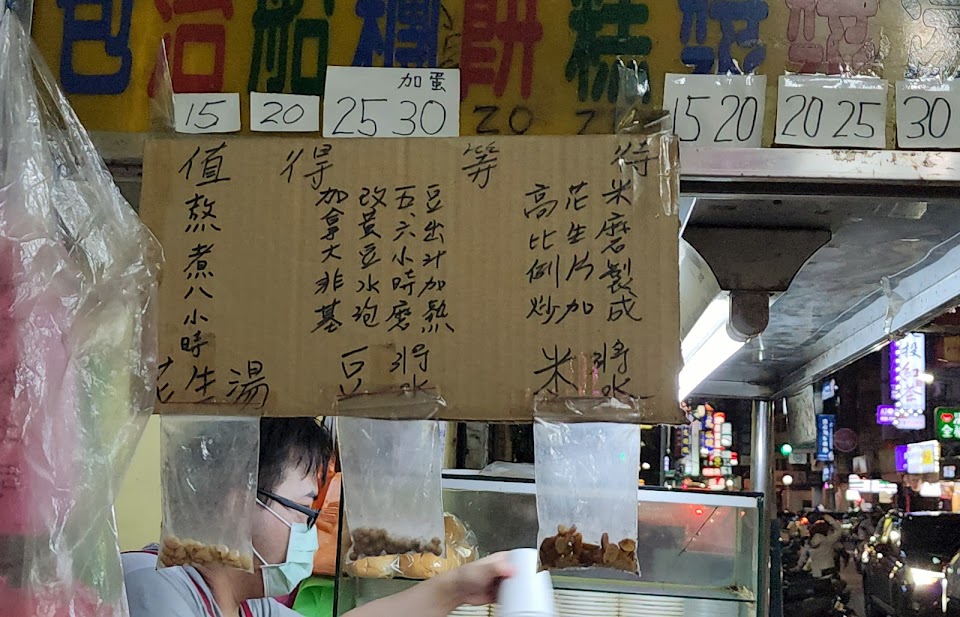 包 餅 糕
加蛋
15 20 25 30 20 15 20 20 25 30
值得等待
米磨製成
花生片加
高比例炒
米漿
豆出汁加熱
五六小時磨
改黃豆水泡
加拿大非基
豆漿
熬煮八小時
花生湯